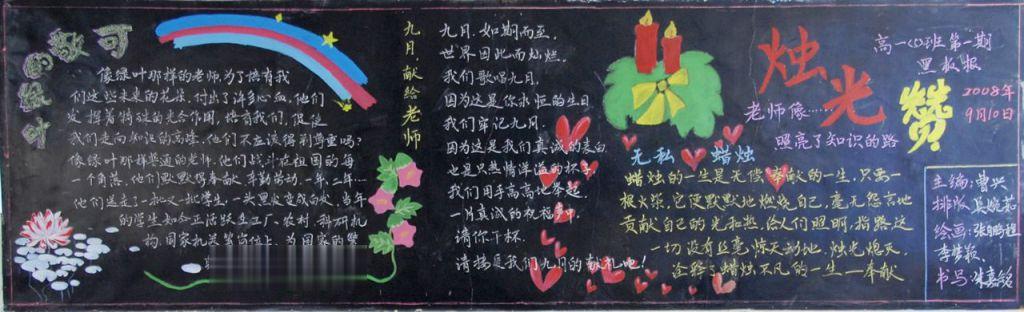 可敬的绿叶
像绿叶那样的老师,为了培育我
们这些未来的花朵,付出了许多心血,他们
发挥着特殊的光合作用,培育我们,促使
我们走向知识的高峰,他们不应该得到尊重吗?
像绿叶那样普通的老师,他们战斗在祖国的每
一个角落,他们默默得奉献,辛勤劳动,一年,二年…
他们送走了一批又一批学生,一头黑发变成白发,当年
的学生如今正活跃在工厂、农村、科研机
构、国家机关等岗位上,为国家的繁
九月,献给老师
九月,如期而至,
世界因此而灿烂,
我们歌唱九月,
因为这是你永恒的生日
我们牢记九月,
因为这是我们真诚的表白
也是只热情洋溢的杯子
我们用手高高地举起,
一片真诚的祝福声中
请你干杯,
请接受我们九月的献礼吧!
烛光
赞
老师像……
照亮了知识的路
无私 蜡烛
蜡烛的一生是无偿奉献的一生,只需一
根火柴,它便默默地燃烧自己,毫无怨言地
贡献自己的光和热,给人们照明,指路这
一切没有丝毫惊天动地,烛光熄灭,
诠释了蜡烛不凡的一生——奉献
高一(5)班第一期
黑板报
2008年
9月10日
主编:曹兴
排版:
绘画:
李梦
书写:朱嘉铭